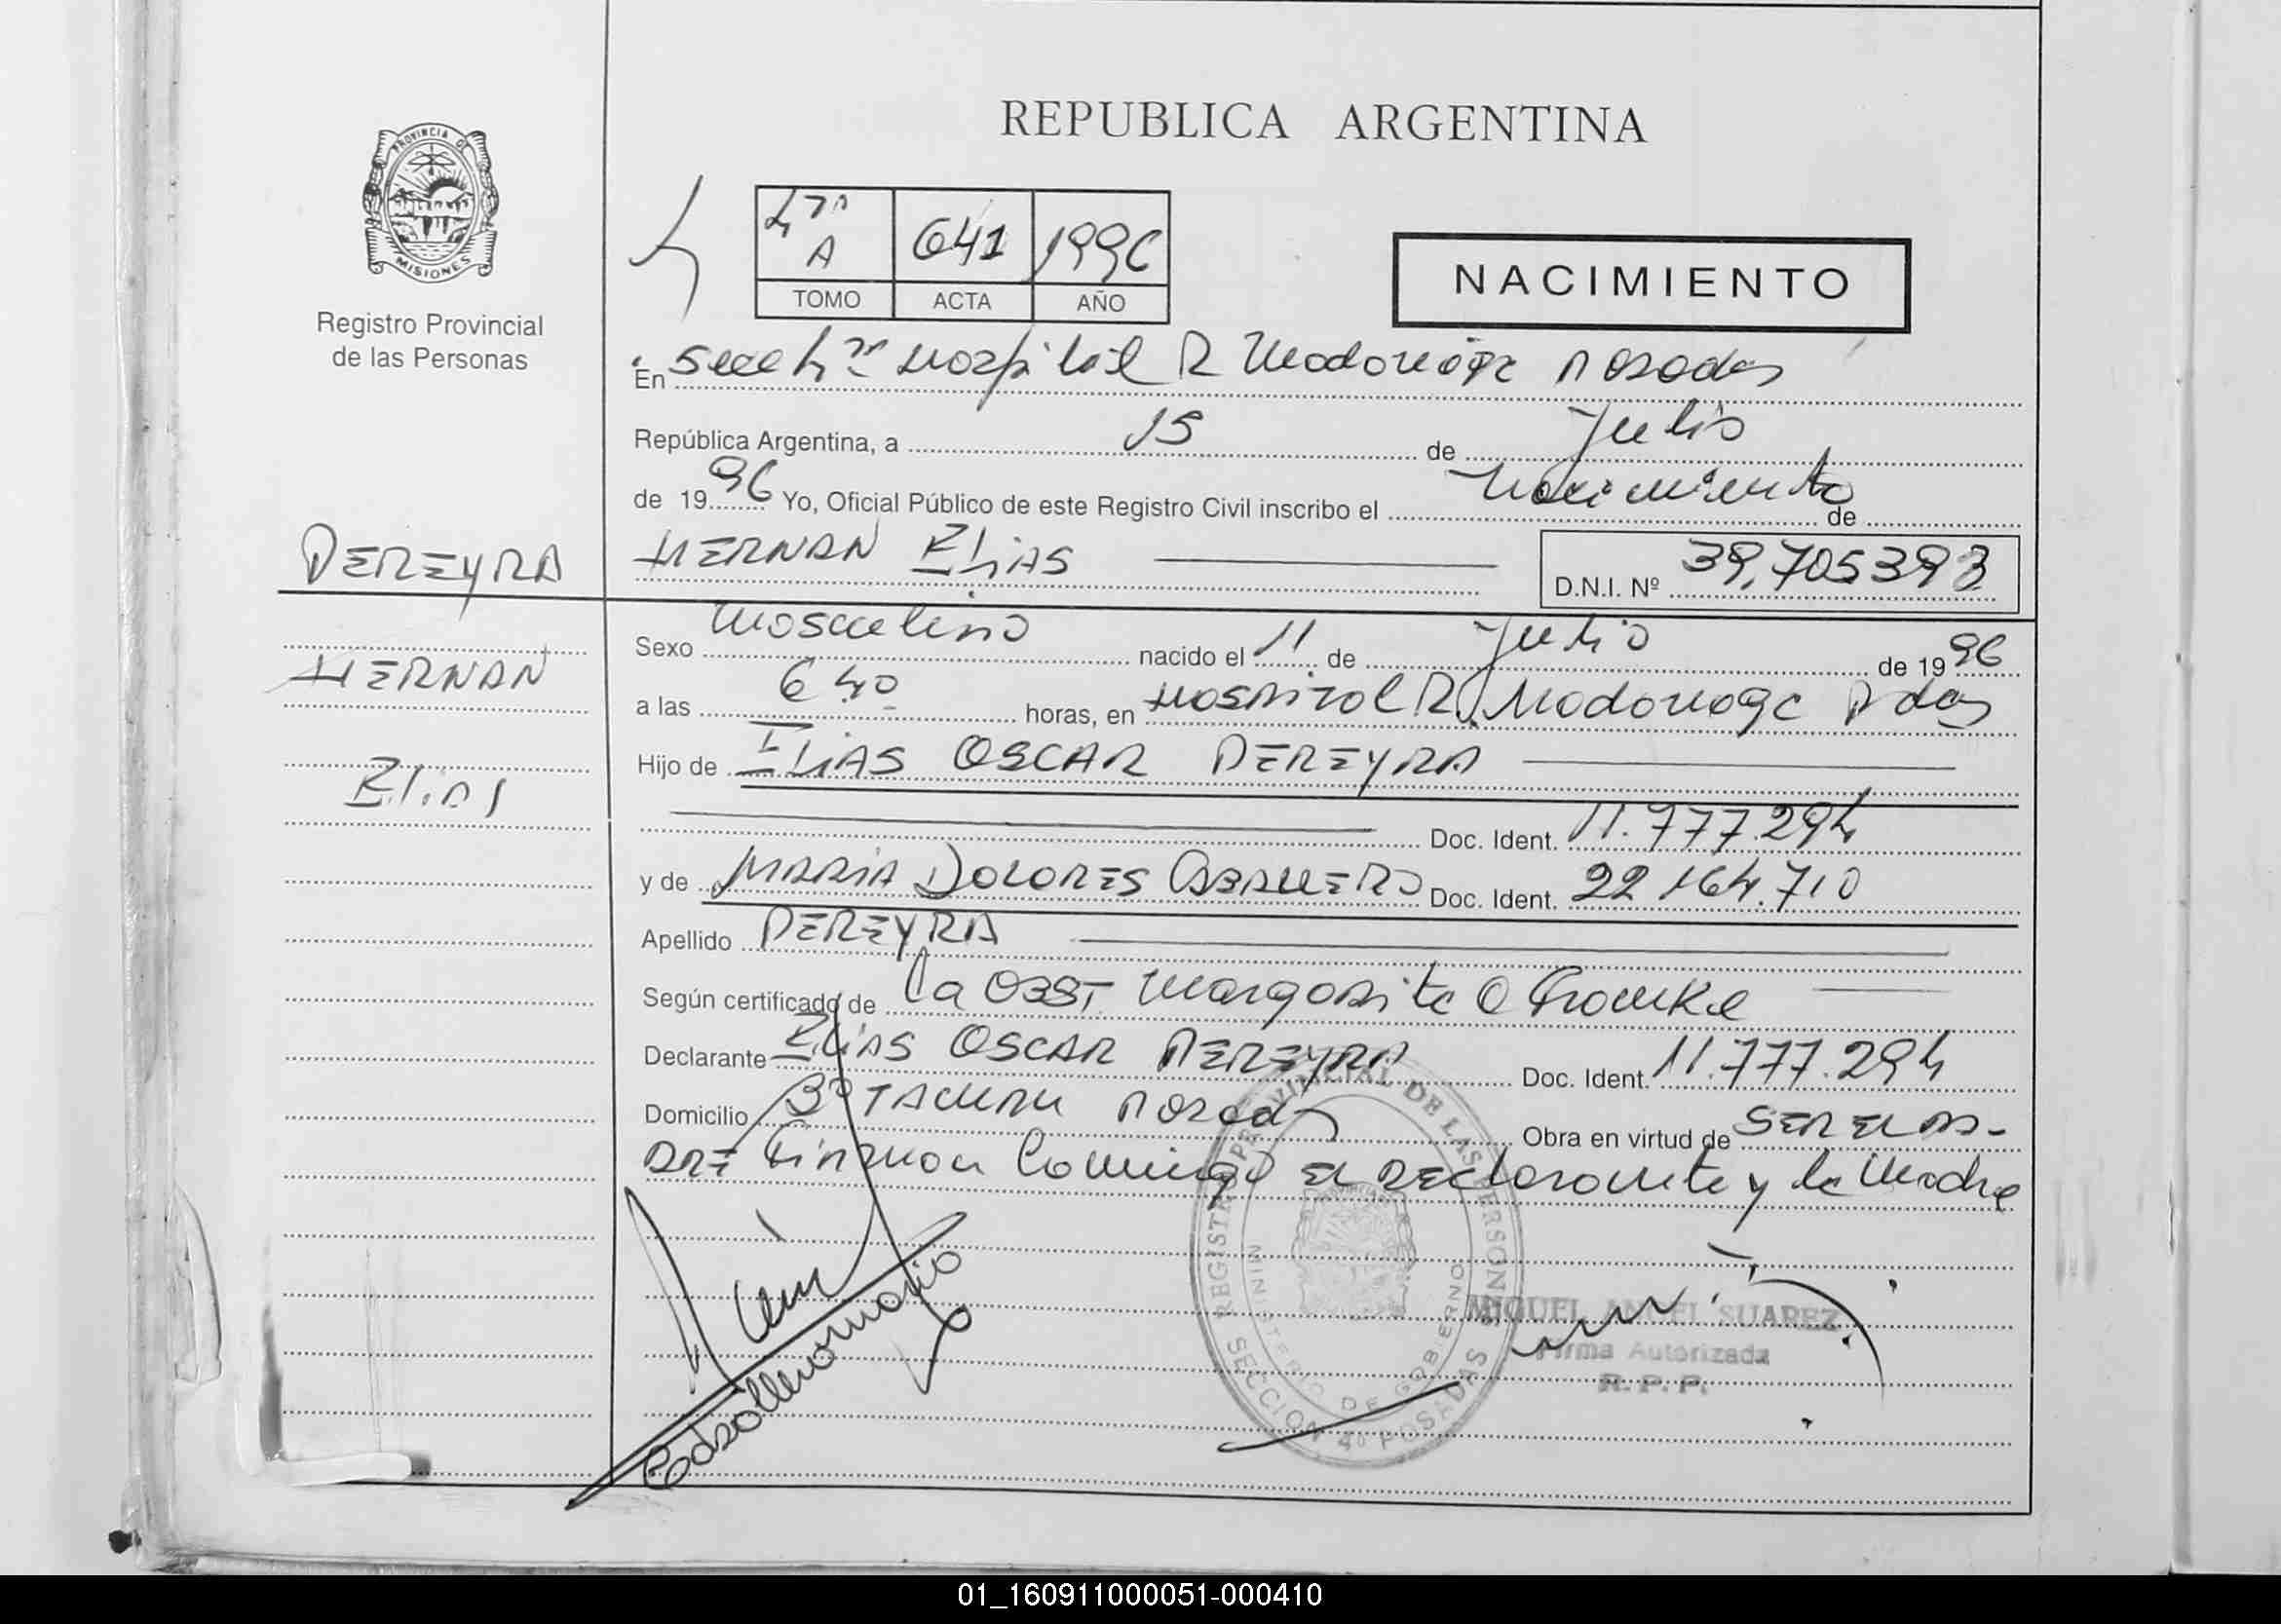 REPUBLICA ARGENTINA
PROVINCIA DE
MISIONES
Registro Provincial
de las Personas
4ta A 641 1996
TOMO ACTA AÑO
NACIMIENTO
En Secc 4ta Hospital R Madariaga Posadas
República Argentina, a 15 de Julio
de 1996 Yo, Oficial Público de este Registro Civil inscribo el Nacimiento de
PEREYRA HERNAN ELIAS D.N.I. Nº 39.705.393
HERNAN
Elias
Sexo Masculino nacido el 11 de Julio de 1996
a las 6 40 horas, en HOSPITAL R. Madariaga Pdas
Hijo de ELIAS OSCAR PEREYRA
Doc. Ident. 11.777.294
y de MARIA DOLORES CABALLERO Doc. Ident. 22 164.710
Apellido PEREYRA
Según certificado de la OBST Margarita
Declarante ELIAS OSCAR PEREYRA Doc. Ident. 11.777.294
Domicilio Bº TACURU Posadas Obra en virtud de SER EL PA-
DRE Firman Conmigo EL DECLARANTE y la Madre
REGISTRO PROVINCIAL DE LAS PERSONAS
MINISTERIO DE GOBIERNO
SECCION 4º POSADAS
MIGUEL ANGEL SUAREZ
Firma Autorizada
R. P. P.
01_160911000051-000410